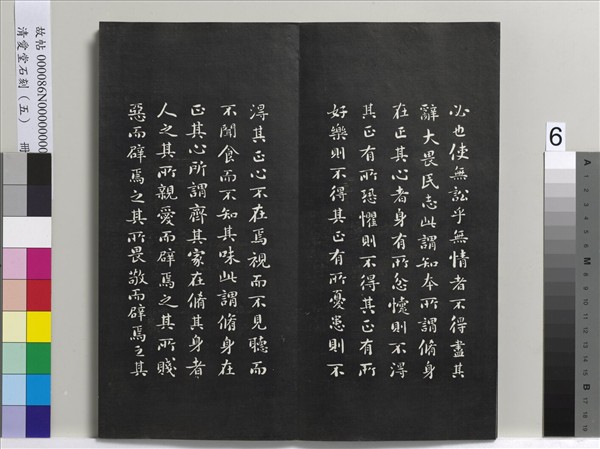 必也使無訟乎無情者不得盡其
辭大畏民志此謂知本所謂脩身
在正其心者身有所忿懥則不得
其正有所恐懼則不得其正有所
好樂則不得其正有所憂患則不
得其正心不在焉視而不見聽而
不聞食而不知其味此謂脩身在
正其心所謂齊其家在脩其身者
人之其所親愛而辟焉之其所賤
惡而辟焉之其所畏敬而辟焉之其
故帖000086N00000000
清愛堂石刻（五） 冊
6
A 1 2 3 4 5 6 M 8 9 10 11 12 13 14 15 B 17 18 19